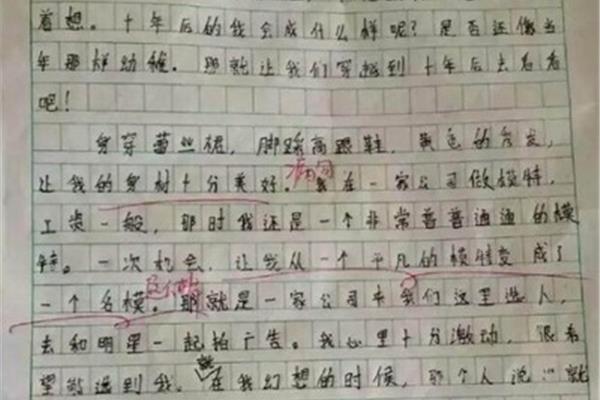 着想。十年后的我会成什么样呢?是否还像当
年那样幼稚。那就让我们穿越到十年后去看看
吧!
身穿蕾丝裙,脚踩高跟鞋,黄色的秀发,
让我的身材十分美好。我在一家公司做模特,
病句
工资一般,那时我还是一个非常普普通通的模
特。一次机会,让我从一个平凡的模特变成了
一个名模。那就是一家公司来我们这里选人,
去和明星一起拍广告。我心里十分激动,很希
望能选到我。就在我幻想的时候,那个人说:“就